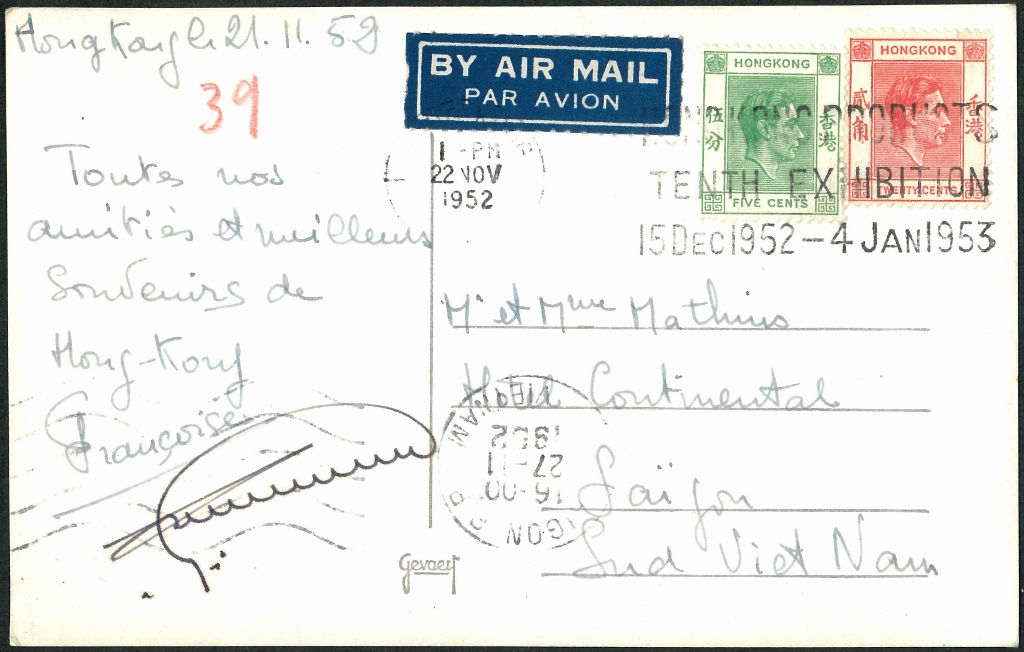 HongKong le 21. 11. 52
39
Toutes nos
amitiés et meilleurs
Souvenirs de
Hong-Kong
Françoise
BY AIR MAIL
PAR AVION
1 - PM
22 NOV
1952
HONGKONG
伍分
香港
FIVE CENTS
HONGKONG
貳角
香港
TWENTY CENTS
HONG KONG PRODUCTS
TENTH EXHIBITION
15 DEC 1952 – 4 JAN 1953
Mr et Mme Mathieu
Hôtel Continental
Saïgon
Sud Viet Nam
SAIGON R.P
16-00
27-11
1952
VIETNAM
Gevaert